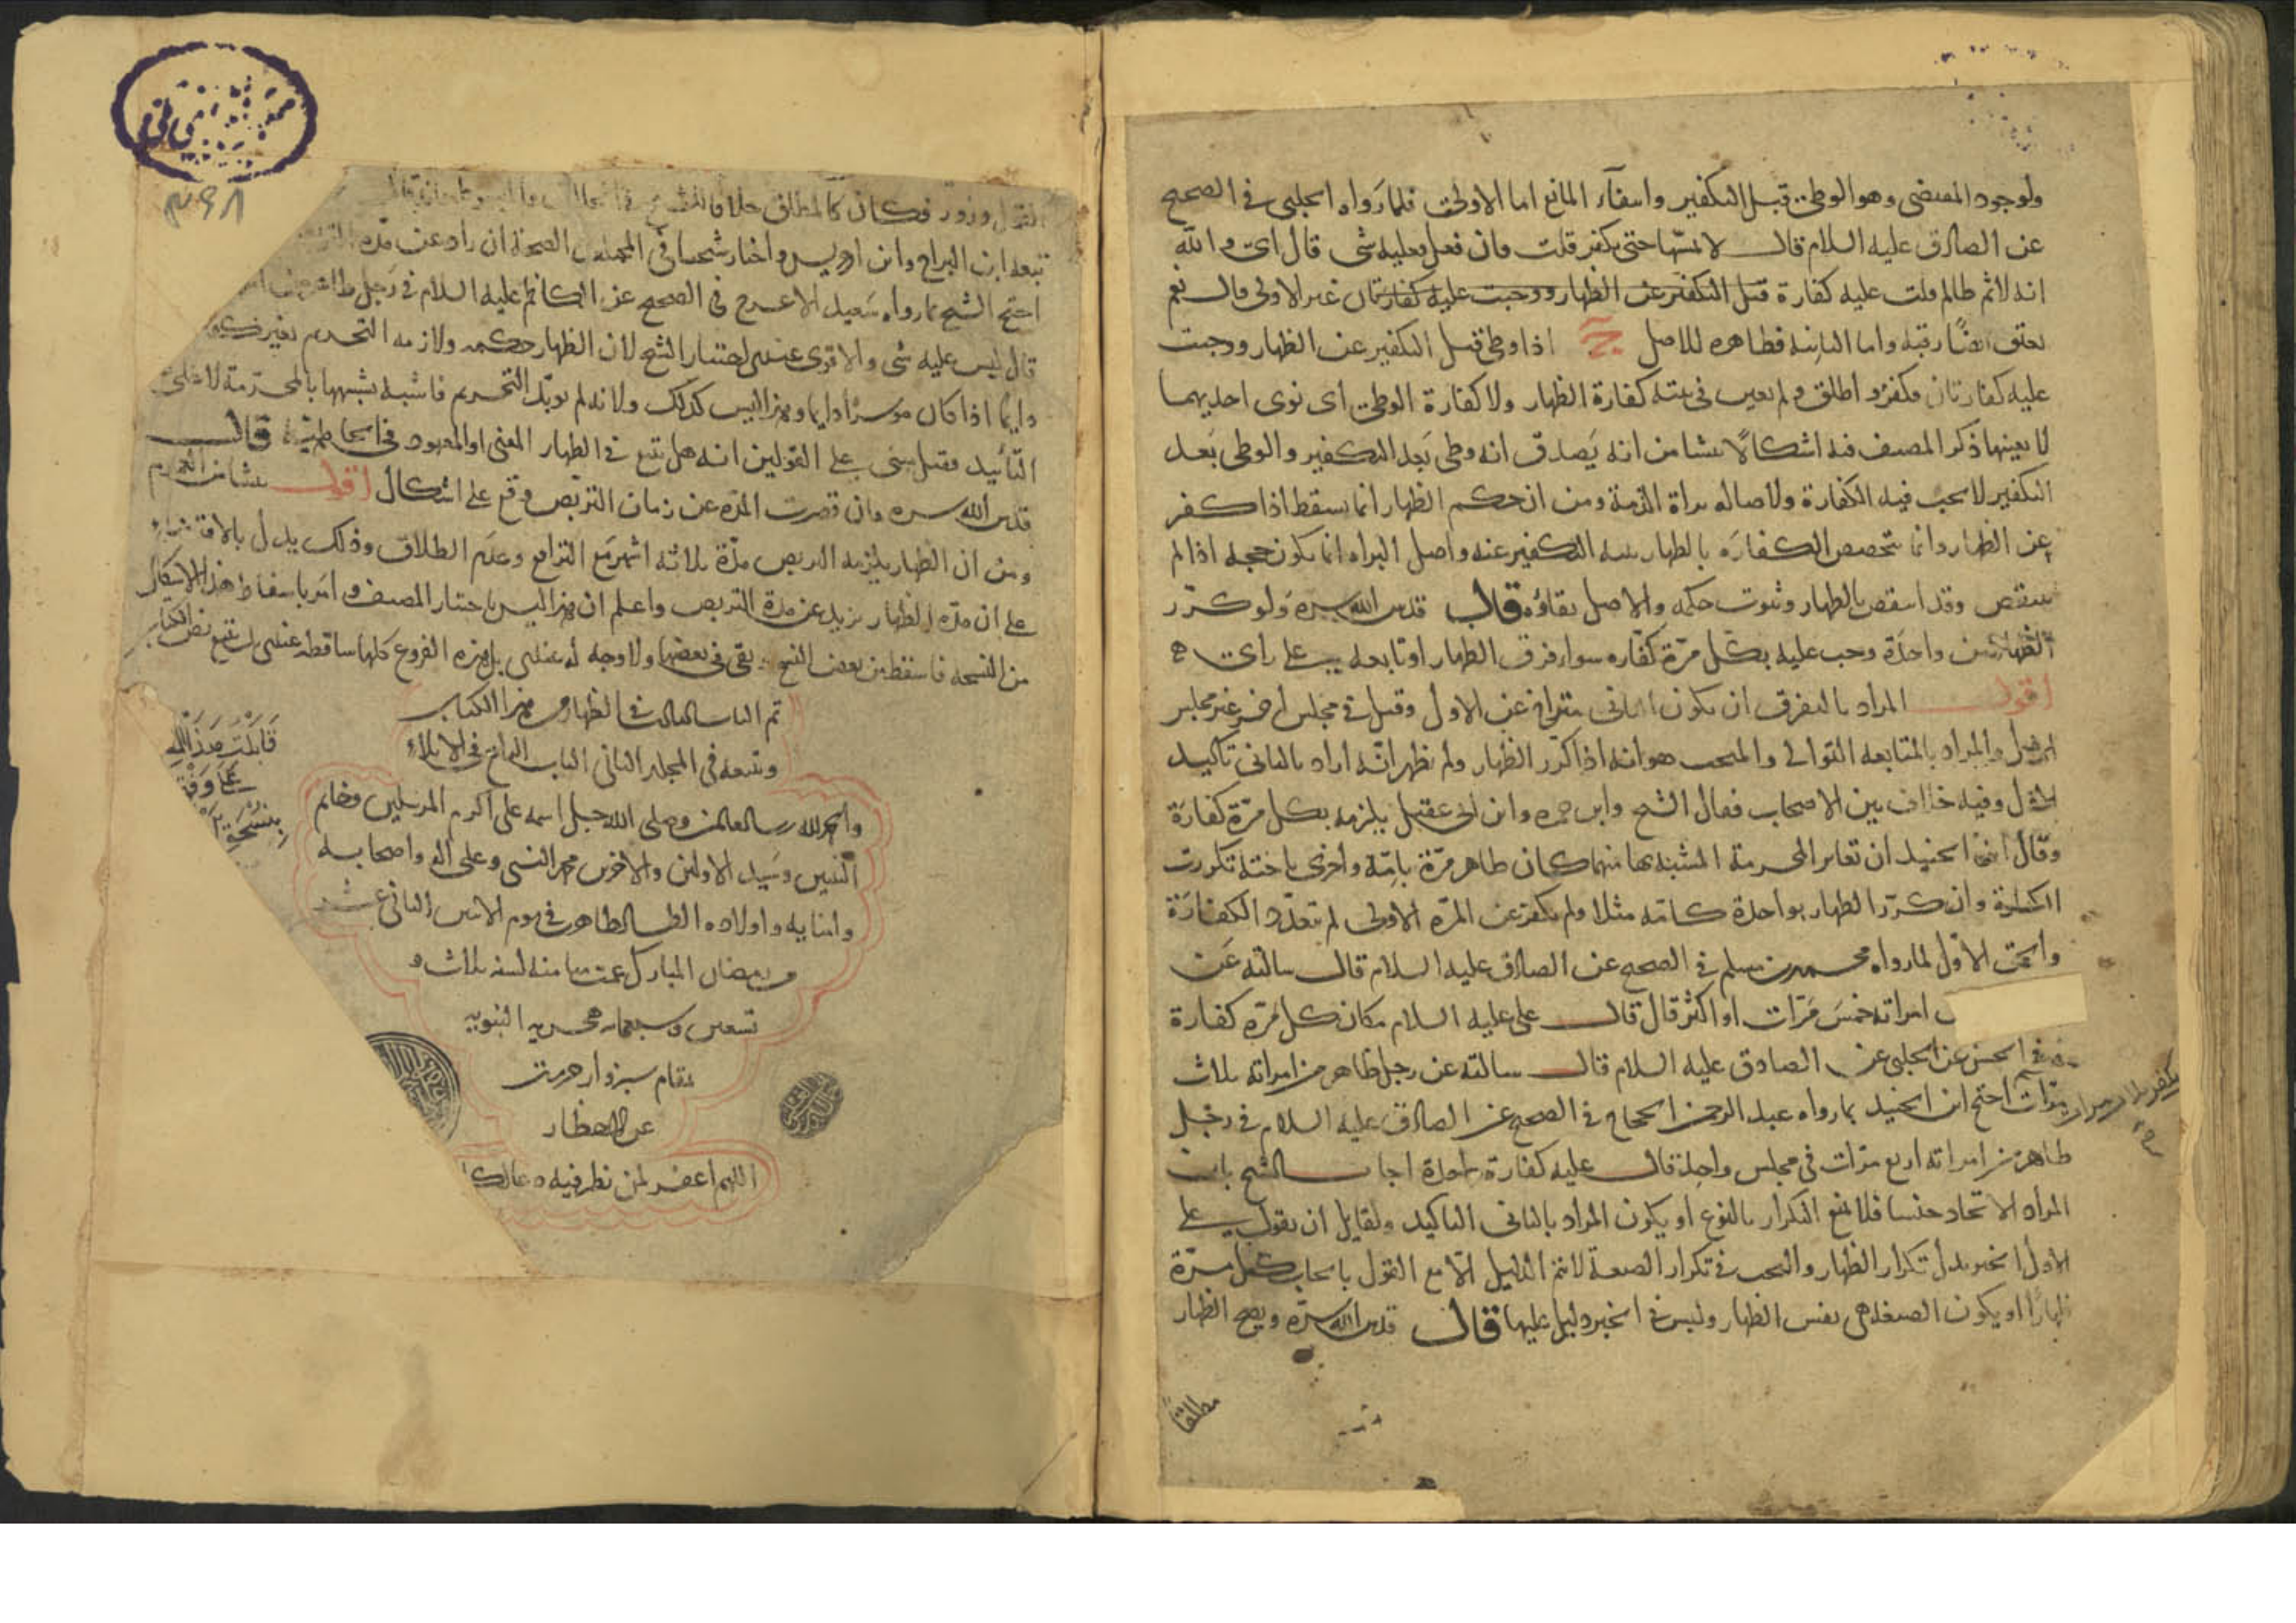 ولوجود المقتضى وهو الوطئ قبل التكفير وانتفاء المانع اما الاولى فلما رواه الحلبى فى الصحيح
عن الصادق عليه السلام قال لا يمسها حتى يكفر قلت فان فعل فعليه شى قال اى والله
انه لاثم ظالم قلت عليه كفارة قبل التكفير عن الظهار ووجبت عليه كفارتان غير الاولى قال نعم
يعتق ايضًا رقبة واما الثانية فظاهره للاصل اذا وطئ قبل التكفير عن الظهار ووجبت
عليه كفارتان فكفر واطلق ولم يعين فى نيته كفارة الظهار ولا كفارة الوطئ اى نوى احديهما
لا بعينها ذكر المصنف فيه اشكالًا ينشا من انه يَصدق انه وطى بَعد التكفير والوطى بَعد
التكفير لا يجب فيه الكفارة ولاصالة براة الذمة ومن ان حكم الظهار انما يسقط اذا كفر
عن الظهار وانما تتخصص الكفارَة بالظهار بنية التكفير عنه واصل البراه انما يكون حجة اذا لم
ينتقض وقد انتقض بالظهار وثبوت حكمه والاصل بقاؤه قال قدس الله سره ولو كرّر
الظهار من واحدَة وجب عليه بكل مرّة كفاره سوا فرق الظهار او تابعه على راى
اقول المراد بالتفرق ان يكون الثانى متراخ عن الاول وقيل فى مجلس اخر غير مجلس
الاول والمراد بالمتابعه التوالى والمبحث هو انه اذا كرّر الظهار ولم يظهر انّه اراد بالثانى تاكيد
الاول وفيه خلاف بين الاصحاب فقال الشيخ وابن حمزه وابن ابى عقيل يلزمه بكل مرّة كفارَة
وقال ابن الجنيد ان تغاير المحرمة المشبه بها منهما كان ظاهر مرّة بامّه واخرى باخته تكررت
الكفارة وان كرّر الظهار بواحدة كامّه مثلا ولم يكفر عن المرّه الاولى لم تتعدّد الكفارَة
واحتج الاول لما رواه محمد بن مسلم فى الصحيح عن الصادق عليه السلام قال سالته عَن
امراته خمسَ مَرّات او اكثر قال قال على عليه السلام مكان كل مَرّه كفارة
فى الحسن عن الحلبى عن الصادق عليه السلام قال سالته عن رجل ظاهر من امراته ثلاث
مرّات احتج ابن الجنيد بما رواه عبد الرحمن الحجاج فى الصحيح عن الصادق عليه السلام فى رجل
ظاهر من امراته اربع مرّات فى مجلس واحد قال عليه كفارة واحدة اجاب الشيخ بان
المراد الاتحاد جنسا فلا يمنع التكرار بالنوع او يكون المراد بالثانى التاكيد ولقايل ان يقول على
الاول الخبر يدل تكرار الظهار والبحث فى تكرار الصيغة لا يتم الدليل الا مع القول بايجاب كل مرّة
ظهارًا او يكون الصيغة هى نفس الظهار وليس فى الخبر دليل عليها قال قدس الله سرّه ويصح الظهار
مطلقًا
تبعه ابن البراج وابن ادريس واختار شيخنا فى المختلف الصحة ان زاد عن مدّه
احتج الشيخ بما رواه سَعيد الاعرج فى الصحيح عن الكاظم عليه السلام فى رَجل ظاهر من
قال ليس عليه شى والاقوى عندى اختيار الشيخ لان الظهار حكمه ولازمه التحريم بغير
دايمًا اذا كان موسرًا دايما وهذا ليس كذلك ولانه لم يوبّد التحريم فاشبه تشبيهها بالمحرّمة لا على
التأبيد وقيل يبنى على القولين انه هل يتبع فى الظهار المعنى او المعهود فى الجاهلية قال
قدس الله سره وان قصرت المدّه عن زمان التربّص وقع على اشكال اقول ينشا من
ومن ان الظهار يلزمه التربص مدّة ثلاثة اشهر مَع الترافع وعدَم الطلاق وذلك يدل بالاقتضاء
على ان مدّه الظهار يزيد عن مدة التربص واعلم ان هذا ليس باختيار المصنف وامر باسقاط هذا الاشكال
من النسخه فاسقط من بعض النسخ وبقى فى بعضها ولا وجه له عندى بل هذه الفروع كلها ساقطه عندى بل نتبع نص الكتاب
تم الباب الثالث فى الظهار من هذا الكتاب
ويتبعه فى المجلد الثانى الباب الرابع فى الايلاء
والحمد لله رب العالمين وصلى الله جل اسمه على اكرم المرسلين وخاتم
النبيين وسَيد الاولين والاخرين محمد النبى وعلى اله واصحابه
وابنايه واولاده الطيبين الطاهرين فى يوم الاثنين الثانى عشر
من رمضان المبارك عمت ميامنه لسنه ثلاث و
تسعين وسبعمايه هجريه النبويه
بمقام سبزوار حرمت
عن الاخطار
اللهم اغفر لمن نظر فيه
قابلت هَذا
بِنسْخَةِ
٣٩٨